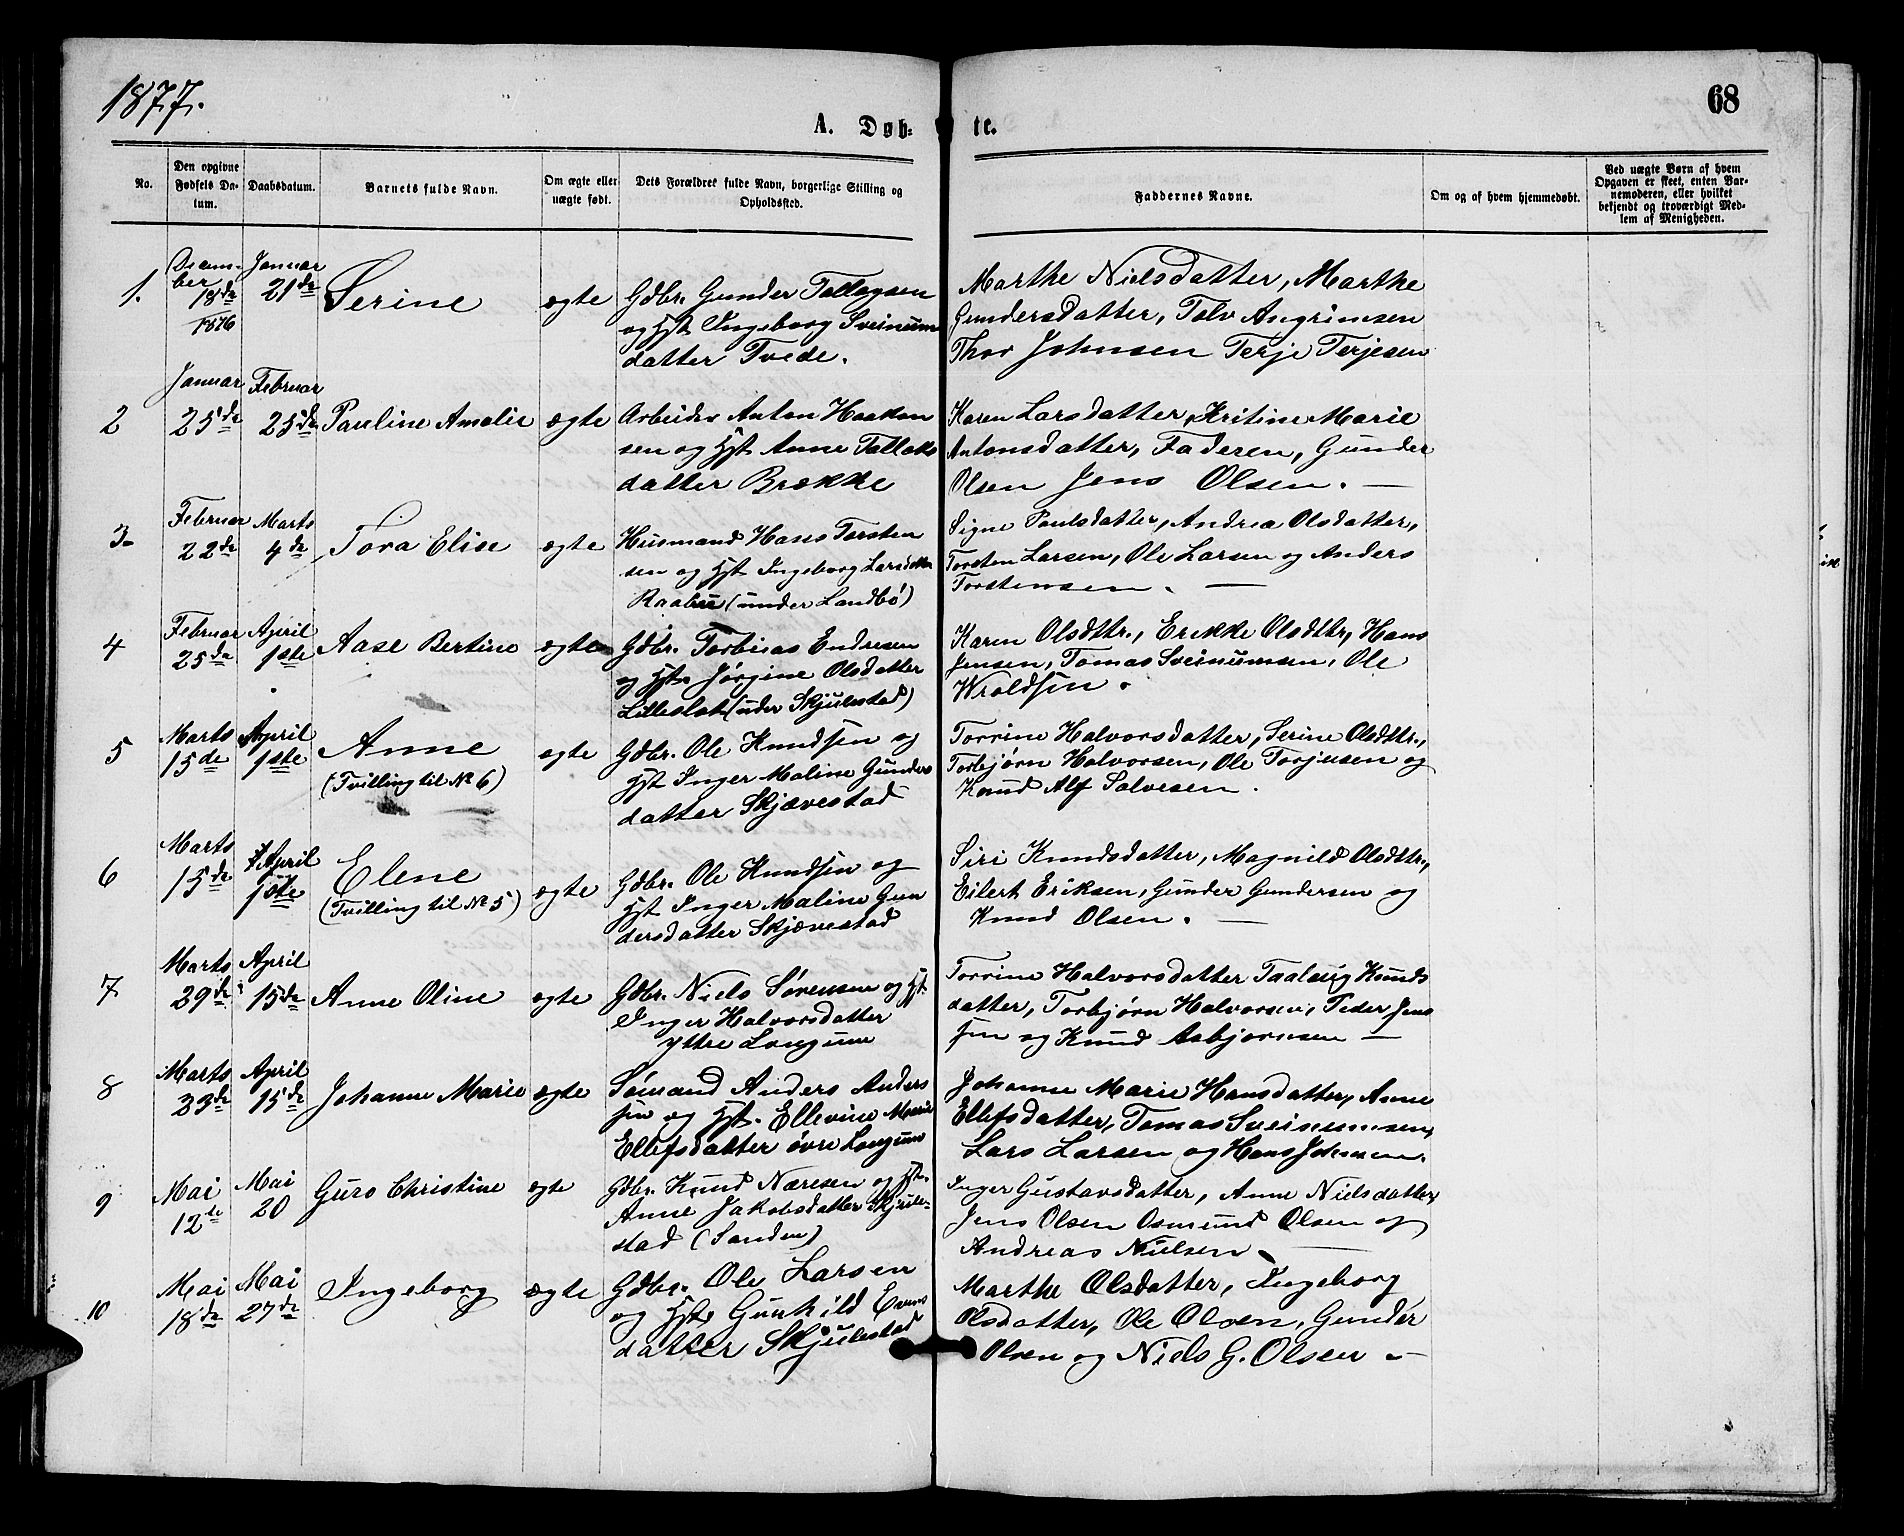 1877.
68
A. Døb- te.
No.
Den opgivne Fødsels Da-tum.
Daabsdatum.
Barnets fulde Navn.
Om ægte eller uægte født.
Dets Forældres fulde Navn, borgerlige Stilling og Opholdssted.
Faddernes Navne.
Om og af hvem hjemmedøbt.
Ved uægte Børn af hvem Opgaven er skeet, enten Bar-nemoderen, eller hvilket bekjendt og troværdigt Med-lem af Menigheden.
1. Decem-ber 18de 1876 Januar 21de Serine ægte
Gdbr. Gunder Tallagsen
og Hst Ingeborg Sveinum
datter Tvede.
Marthe Nielsdatter, Marthe
Gundersdatter, Talv Angrimsen
Thor Johnsen Terje Terjesen
2 Januar 25de Februar 25de Pauline Amalie ægte
Arbeider Anton Haakon
sen og Hst Anne Tallaks
datter Brække
Karen Larsdatter, Kritine Marie
Antonsdatter, Faderen, Gunder
Olsen Jens Olsen. —
3- Februar 22de Marts 4de Tora Elise ægte
Husmand Hans Torsten
sen og Hst Ingeborg Larsdatter
Raabu (under Landbö)
Signe Paulsdatter, Andrea Olsdatter,
Torsten Larsen, Ole Larsen og Anders
Torstensen. —
4 Februar 25de April 1ste Aase Bertine ægte
Gdbr. Tobias Endresen
og Hst. Jörgine Olsdatter
Lilleslot (under Skjulestad)
Karen Olsdttr., Erikke Olsdttr, Hans
Jensen, Tomas Sveinumsen, Ole
Wroldsen.
5 Marts 15de April 1ste Anne ægte
(Tvilling til No 6)
Gdbr. Ole Knudsen og
Hst Inger Maline Gunders
datter Skjævestad
Torrine Halvorsdatter, Serine Olsdttr.,
Torbjørn Halvorsen, Ole Torjusen og
Knud Alf Salvesen.
6 Marts 15de April 1ste Elene ægte
(Tvilling til No 5)
Gdbr. Ole Knudsen og
Hst Inger Maline Gun
dersdatter Skjævestad
Siri Knudsdatter, Magnild Olsdttr.,
Eilert Eriksen, Gunder Gundersen og
Knud Olsen. —
7 Marts 29de April 15de Anne Oline ægte
Gdbr. Niels Sørensen og Hst.
Inger Halvorsdatter
yttre Longum
Torrine Halvorsdatter Taaleug Knuds
datter, Torbjørn Halvorsen, Peder Jens
sen og Knud Asbjørnsen —
8 Marts 23de April 15de Johanne Marie ægte
Sömand Anders Anders
sen og Hst. Ellevine Marie
Ellefsdatter övre Longum
Johanne Marie Hansdatter, Anne
Ellefsdatter, Tomas Sveinumsen,
Lars Larsen og Hans Johnsen.
9 Mai 12te Mai 20 Guro Christine ægte
Gdbr. Knud Næresen og Hst.
Anne Jakobsdatter Skjule-
stad (Sanden)
Inger Gustavsdatter, Anne Nielsdatter,
Jens Olsen Osmund Olsen og
Andreas Nielsen. —
10 Mai 18de Mai 27de Ingeborg ægte
Gdbr. Ole Larsen
og Hst. Gunhild Evens
datter Skjulestad
Marthe Olsdatter, Ingeborg
Olsdatter, Ole Olsen, Gunder
Olsen og Niels G. Olsen —